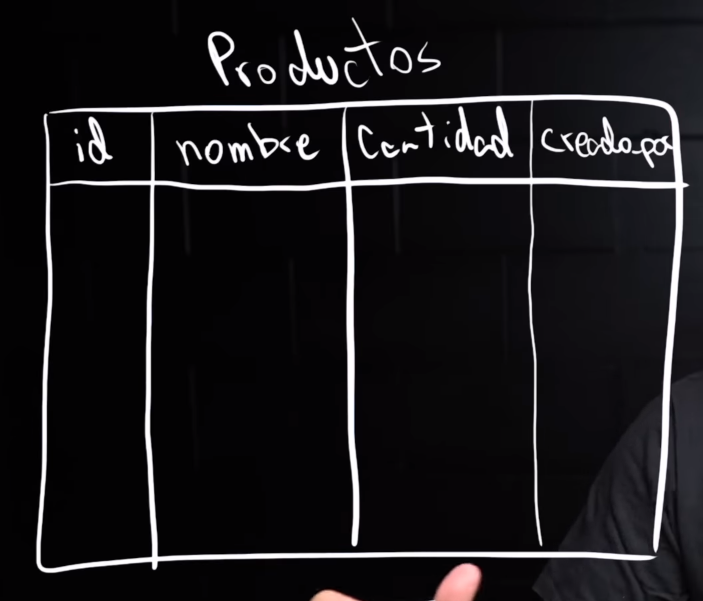 Productos
id nombre Cantidad creado_por